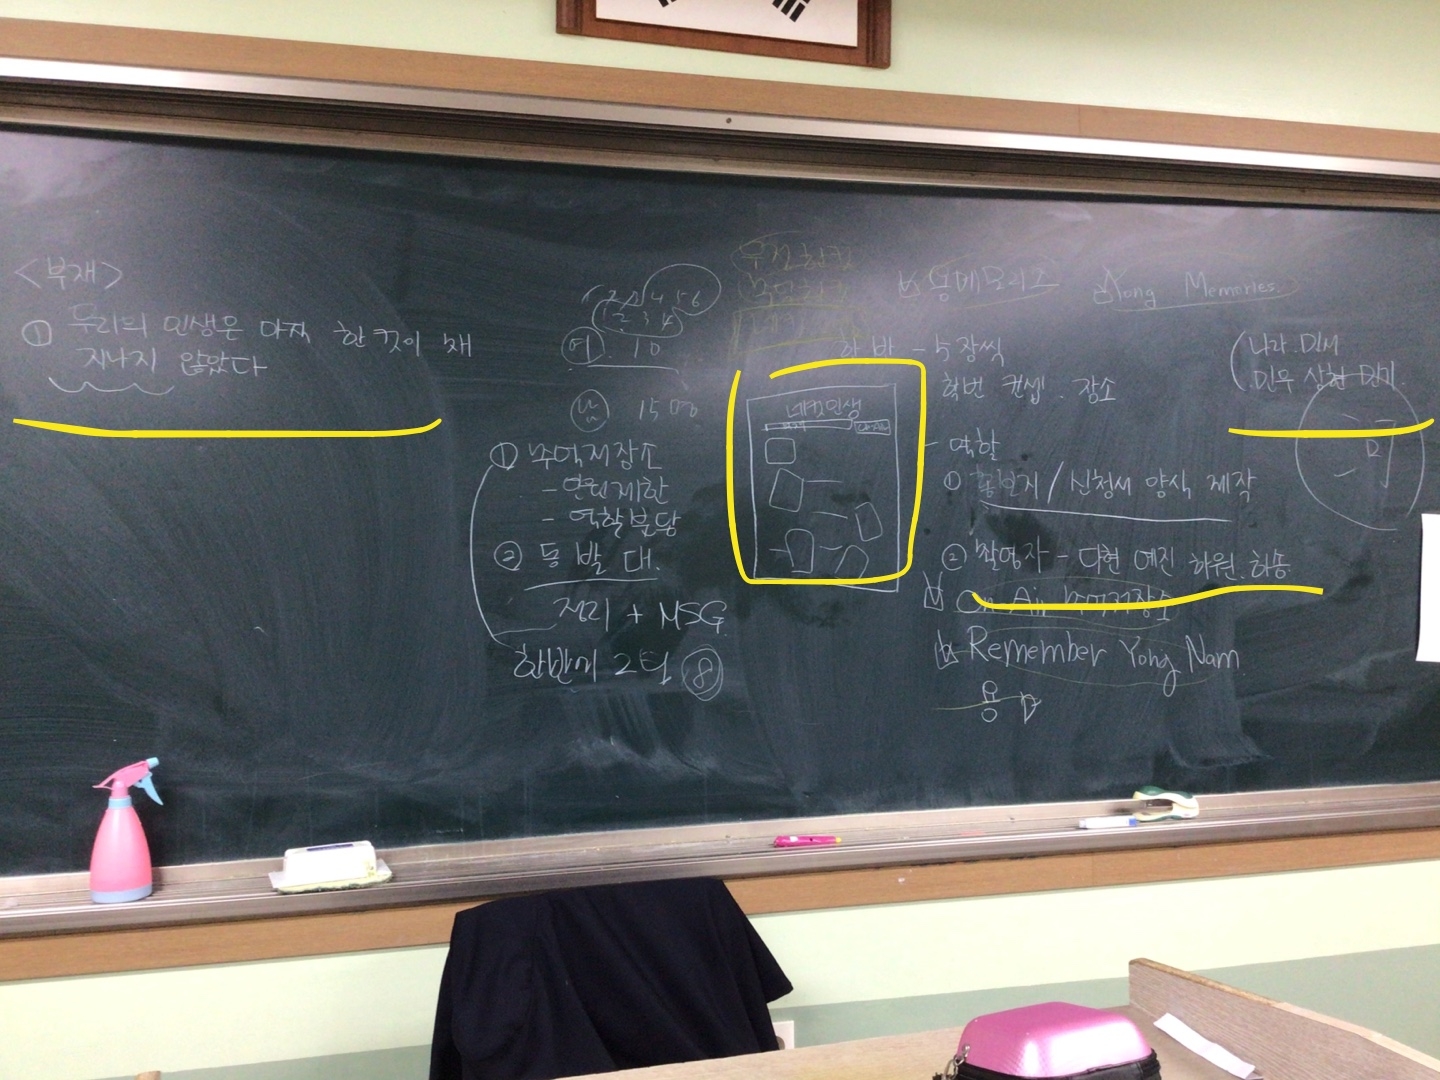 <부재>
① 우리의 인생은 아직 한 컷이 채
지나지 않았다
여 . 10
남 15명
① 추억저장소
- 인원제한
- 역할분담
② 동 발 대.
정리 + MSG
한반에 2팀 ⑧
용메모리즈
Yong Memories
한 반 - 4장씩
학번 컨셉 . 장소
네컷인생
역할
① 홍보지 / 신청서 양식 제작
② 촬영자 - 다현 예진 하원. 하송
On Air 추억저장소
Remember Yong Nam
용
나라. 민서
민우 상현 민기.